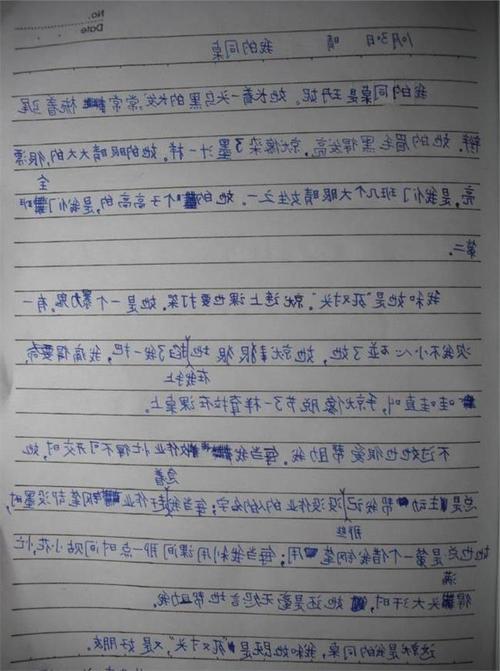 No.
Date
10月30日 晴
我的同桌
我的同桌是王丹妮。她长着一头乌黑的长发,常常梳着马尾
辫。她的眉毛黑得发亮,就像染了墨汁一样。她的眼睛大大的,很漂
亮,是我们班几个大眼睛女生之一。她的个子高高的,是我们全班
第二。
我和她是“死对头”。就连上课也要打架。她是一个暴力鬼。有一
次我不小心碰了她,她就狠狠地在我手上掐了我一把,我痛得要命,
哇哇直叫,手就像脱节了一样耷拉在课桌上。
不过她也很爱帮助我。每当我作业忙得不可开交时,她
总是主动帮我记那些没交作业的人的名字;每当我急着赶作业钢笔却没墨时,
她也总是第一个借我钢笔用;每当我利用课间那一点时间贴小花,忙
得满头大汗时,她还是毫无怨言地帮助我。
这就是我的同桌,我和她既是“死对头”,又是好朋友。